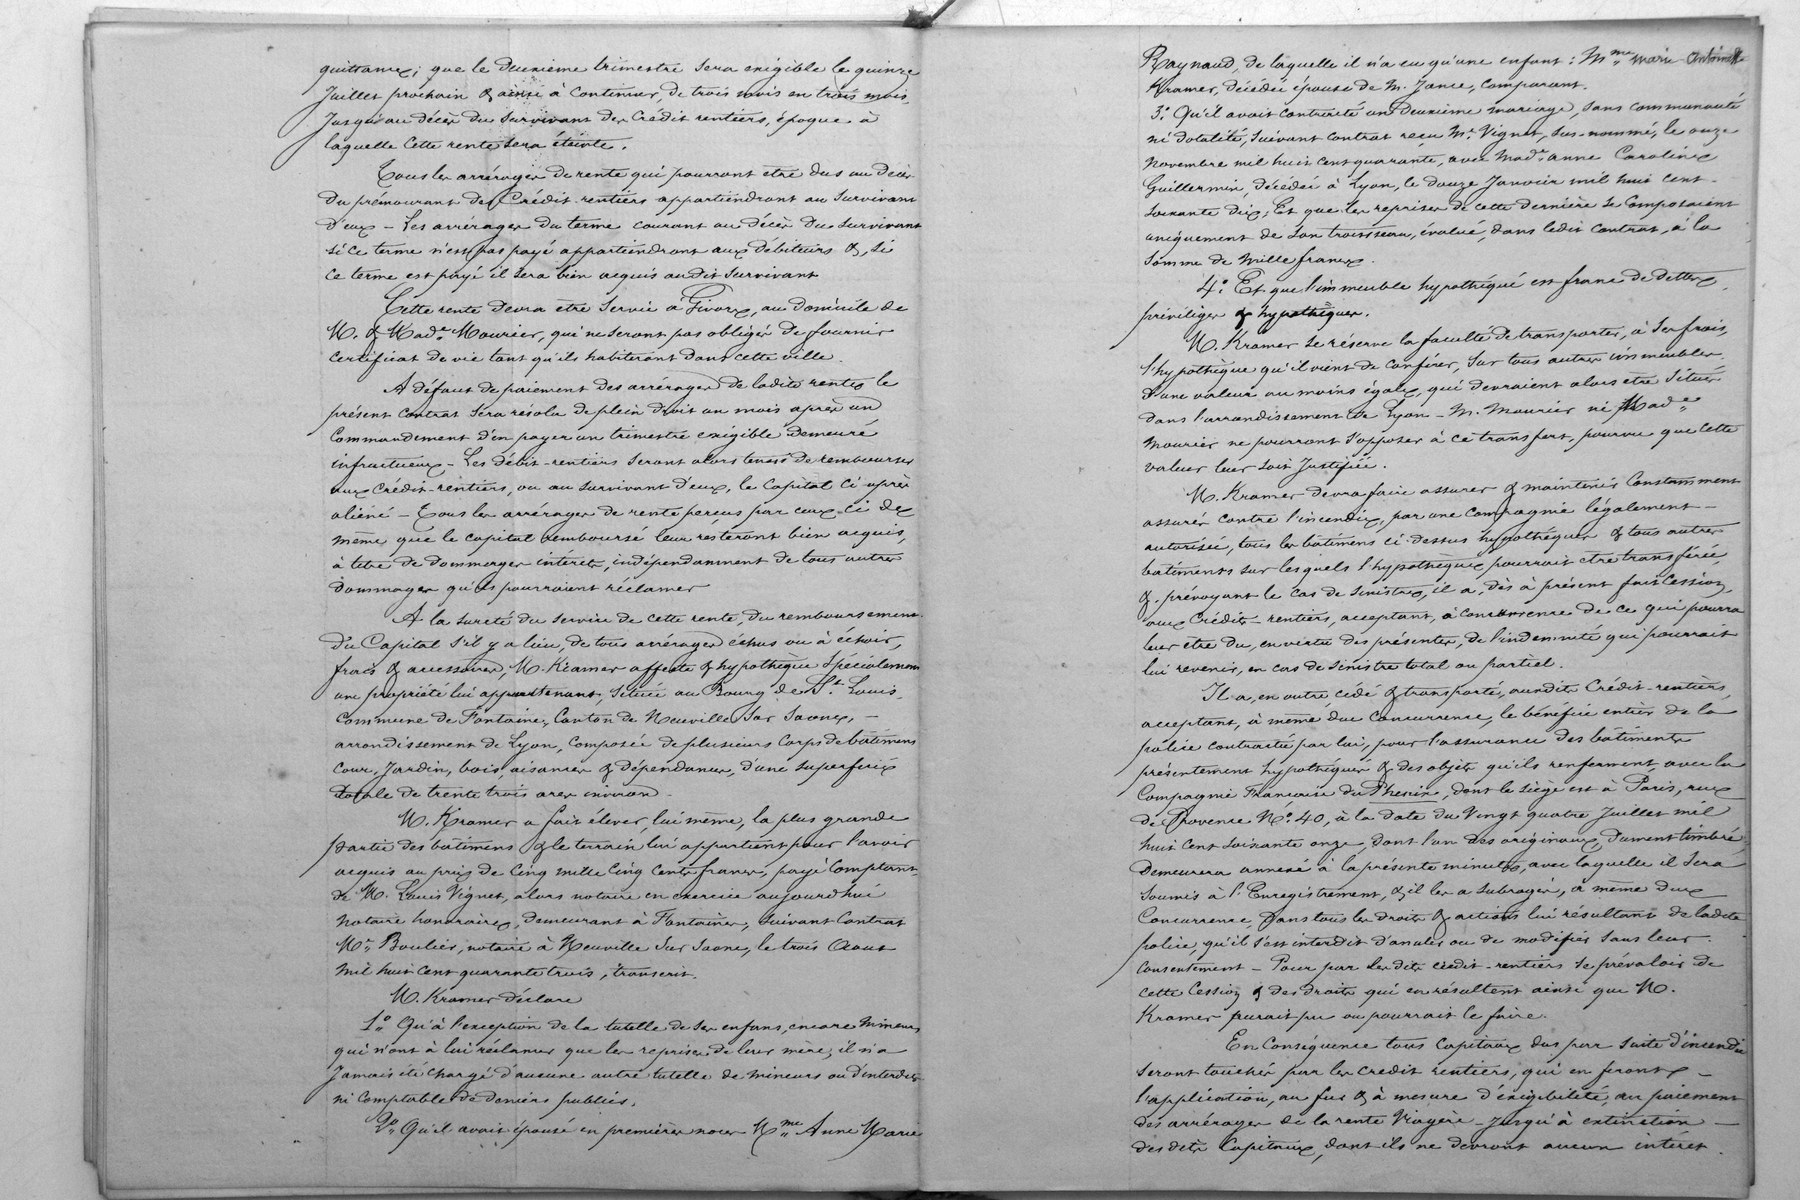 quittancé; que le deuxième trimestre sera exigible le quinze
Juillet prochain & ainsi à continuer, de trois mois en trois mois,
Jusqu'au décès du Survivant des Crédit rentiers, époque à
laquelle cette rente sera éteinte.
Tous les arrérages de rente qui pourront etre dus au décès
Du prémourant des Crédit-rentiers appartiendront au Survivant
D'eux – Les arrérages du terme courant au décès du survivant
si ce terme n'est pas payé appartiendront aux débiteurs &, si
ce terme est payé il sera bien acquis au dit Survivant
Cette rente devra etre Servie à Givors, au domicile de
M. & Made Mourier, qui ne seront pas obligés de fournir
certificat de vie tant qu'ils habiteront dans cette ville.
A défaut de paiement des arrérages de ladite rente le
présent contrat sera résolu de plein droit un mois après un
Commandement d'en payer un trimestre exigible demeuré
infructueux – Les débit-rentiers seront alors tenus de rembourser
aux crédit-rentiers, ou au survivant d'eux, le capital ci-après
aliéné – Tous les arrérages de rente perçus par ceux-ci de
même que le capital remboursé leur resteront bien acquis,
à titre de dommages intérêts, indépendamment de tous autres
Dommages qu'ils pourraient réclamer
A la sureté du service de cette rente, du remboursement
du Capital s'il y a lieu, de tous arrérages échus ou à échoir,
frais & accessoires, M. Kramer affecte & hypothèque Spécialement
une propriété lui appartenant, située au Bourg de St. Louis,
Commune de Fontaines, Canton de Neuville Sur Saone, –
arrondissement de Lyon, composée de plusieurs corps de bâtimens
Cour, Jardin, bois, aisances & dépendances, d'une superficie
totale de trente trois ares environ.
M. Kramer a fait élever, lui même, la plus grande
partie des bâtimens & le terrain lui appartient pour l'avoir
acquis au prix de Cinq mille Cinq cents francs, payé Comptant
de M. Louis Vignet, alors notaire en exercice aujourd'hui
Notaire honoraire, demeurant à Fontaines, Suivant Contrat
Me Boulier, notaire à Neuville Sur Saone, le trois Aout
Mil huit Cent quarante trois, transcrit.
M. Kramer déclare
1° Qu'à l'exception de la tutelle de Ses enfans, encore Mineurs
qui n'ont à lui réclamer que les reprises de leur mère, il n'a
Jamais été chargé d'aucune autre tutelle de mineurs ou d'interdits
ni comptable de deniers publics.
2° Qu'il avait épousé en premières noces Mme Anne Marie
Raynaud, de laquelle il n'a eu qu'une enfant: Mme Marie Antoinette
Kramer, décédée épouse de M. Jance, Comparant.
3° Qu'il avait contracté un Deuxième mariage, sans communauté
ni dotalité, suivant contrat reçu Me Vignet, sus-nommé, le onze
Novembre mil huit cent quarante, avec Made Anne Caroline
Guillermin, décédée à Lyon, le douze Janvier mil huit cent
soixante dix; Et que les reprises de cette dernière se Composaient
uniquement de Son trousseau, évalué, dans ledit contrat, à la
Somme de Mille francs.
4° Et que l'immeuble hypothéqué est franc de dettes,
privilèges & hypothèques.
M. Kramer se réserve la faculté de transporter, à Ses frais,
l'hypothèque qu'il vient de Conférer, Sur tous autres immeubles
d'une valeur au moins égale, qui devraient alors etre situés
dans l'arrondissement de Lyon – M. Mourier ni Made
Mourier ne pourront s'opposer à ce transfert, pourvu que cette
valeur leur soit Justifiée.
M. Kramer devra faire assurer & maintenir Constamment
assurés contre l'incendie, par une compagnie légalement –
autorisée, tous les bâtimens ci-dessus hypothéqués & tous autres
batiments sur lesquels l'hypothèque pourrait etre transférée
&, prévoyant le cas de Sinistre, il a, dès à présent fait Cession,
aux Crédits-rentiers, acceptant, à Concurrence de ce qui pourra
leur etre du, en vertu des présentes, de l'indemnité qui pourrait
lui revenir, en cas de Sinistre total ou partiel.
Il a, en outre, cédé & transporté, auxdits Crédit-rentiers,
acceptant, à même due Concurrence, le bénéfice entier de la
police contractée par lui, pour l'assurance des batiments
présentement hypothéqués & des objets qu'ils renferment, avec la
Compagnie Française du Phenix, dont le Siège est à Paris, rue
de Provence N° 40, à la date du Vingt quatre Juillet mil
huit cent soixante onze, dont l'un des originaux, dument timbré
Demeurera annexé à la présente minute, avec laquelle il Sera
Soumis à l'Enregistrement, & il les a Subrogés, à même due
Concurrence, Dans tous les droits & actions lui résultant de ladite
police, qu'il s'est interdit d'annuler ou de modifier sans leur
consentement – Pour par les dits crédit-rentiers se prévaloir de
cette Cession & des droits qui en résultent ainsi que M.
Kramer aurait pu ou pourrait le faire.
En Conséquence tous Capitaux dus par suite d'incendie
Seront touchés par les crédit rentiers, qui en feront –
l'application, au fur & à mesure d'exigibilité, au paiement
des arrérages de la rente Viagère – Jusqu'à extinction –
des dits Capitaux, dont ils ne devront aucun intérêt.